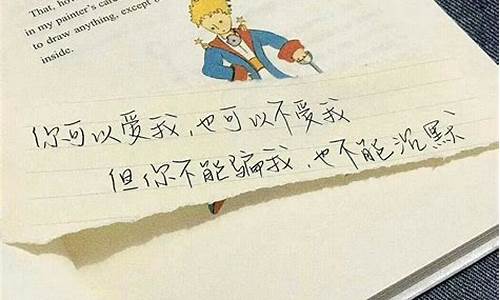 That, how
in my painter's care
to draw anything, except
inside.
你可以愛我,也可以不愛我
但你不能骗我,也不能沉默